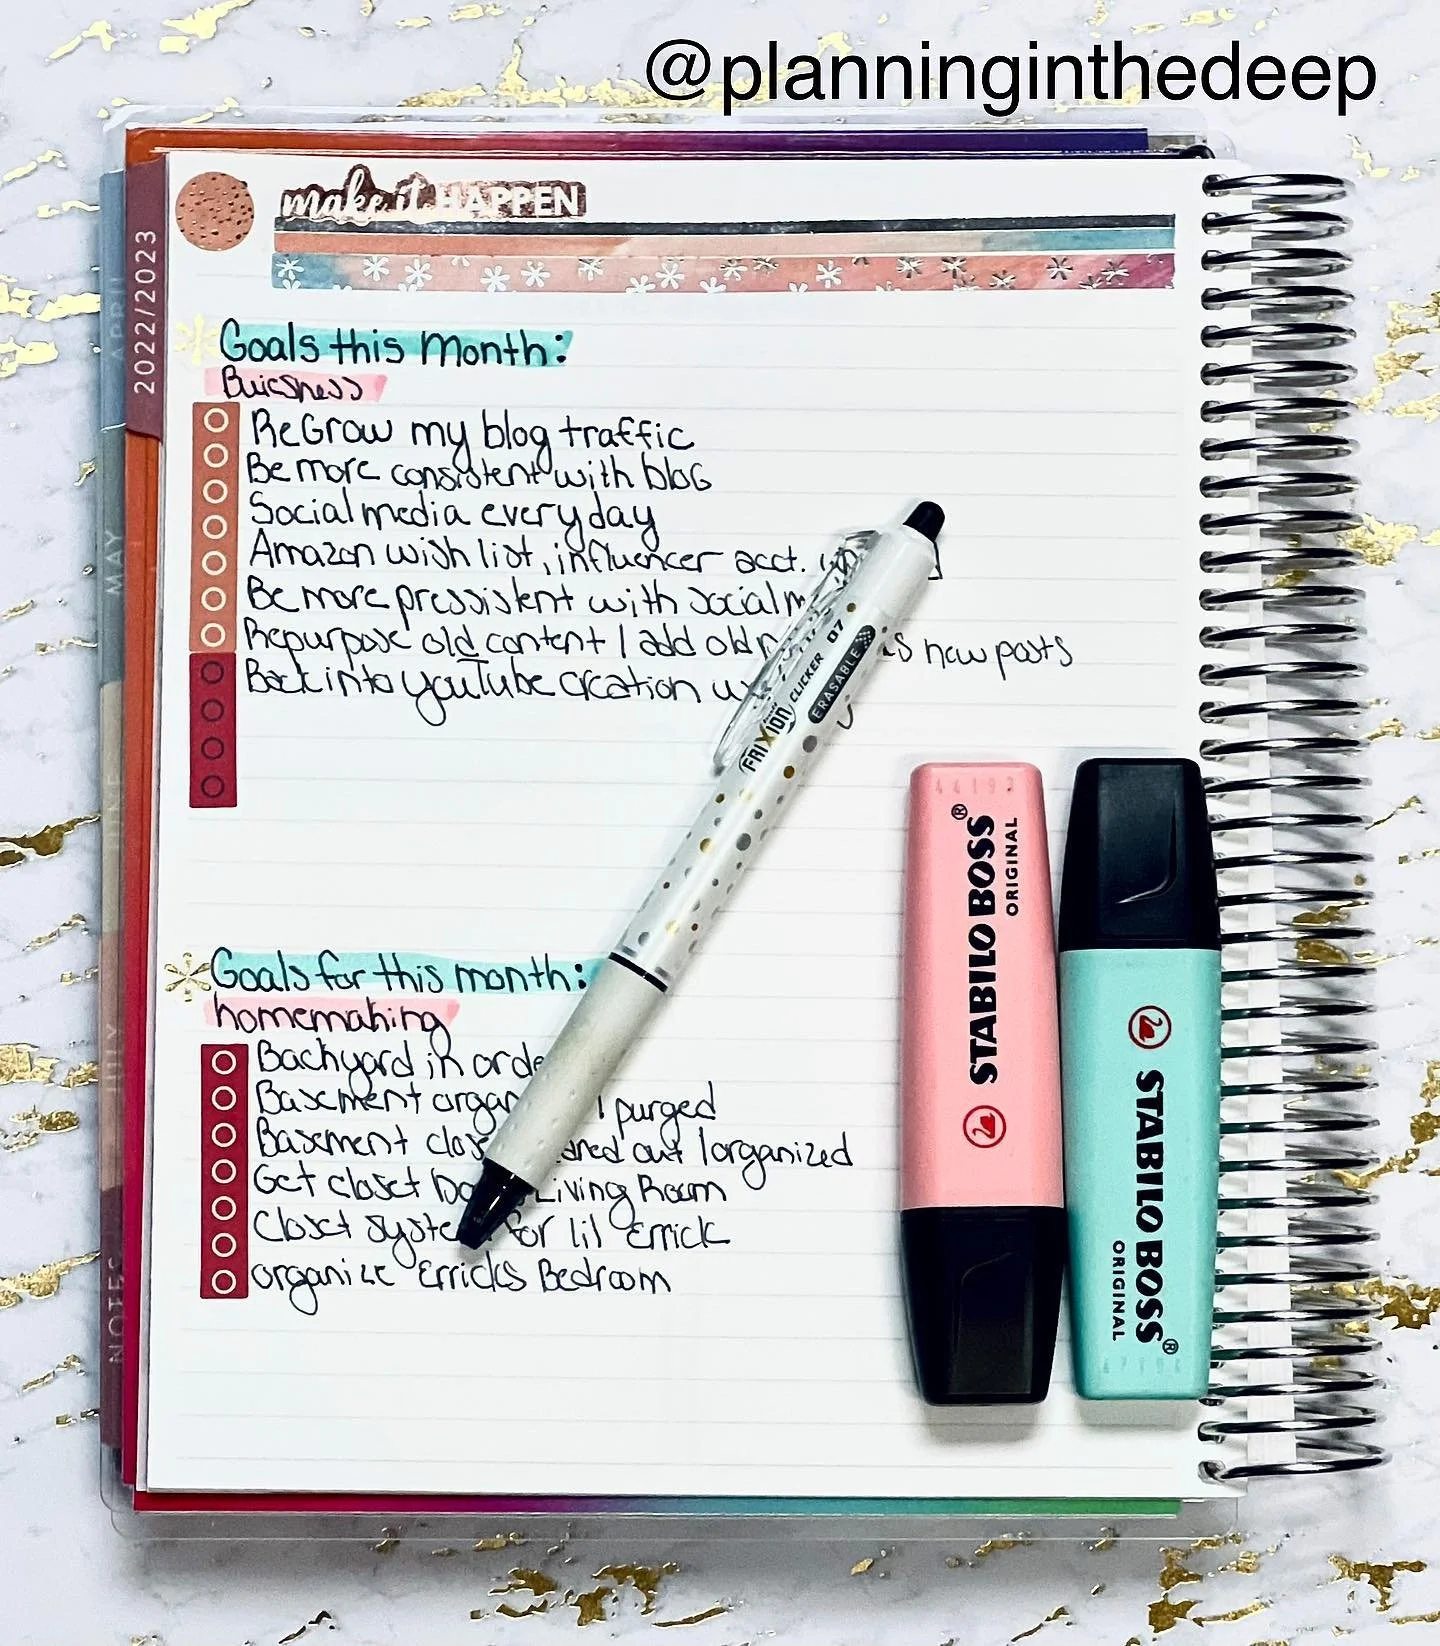 @planninginthedeep
make it HAPPEN
2022/2023
APRIL
MAY
JUNE
JULY
NOTES
Goals this Month:
Buicsness
ReGrow my blog traffic
Be more consistent with blog
Social media everyday
Amazon wish list, influencer acct.
Be more pressistent with social
Repurpose old content / add old as new posts
Back into YouTube creation
Goals for this month:
homemaking
Backyard in
Basement / purged
Basement out / organized
Get closet Living Room
Closet for lil Errick
organize Erricks Bedroom
FRIXION CLICKER 07
ERASABLE
44192
STABILO BOSS®
ORIGINAL
STABILO BOSS®
ORIGINAL